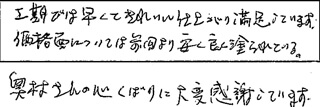 工期がは早くてきれいい仕上がり満足しています。
価格面については前回より安く良く塗られている。
奥村さんの心くばりに大変感謝しています。